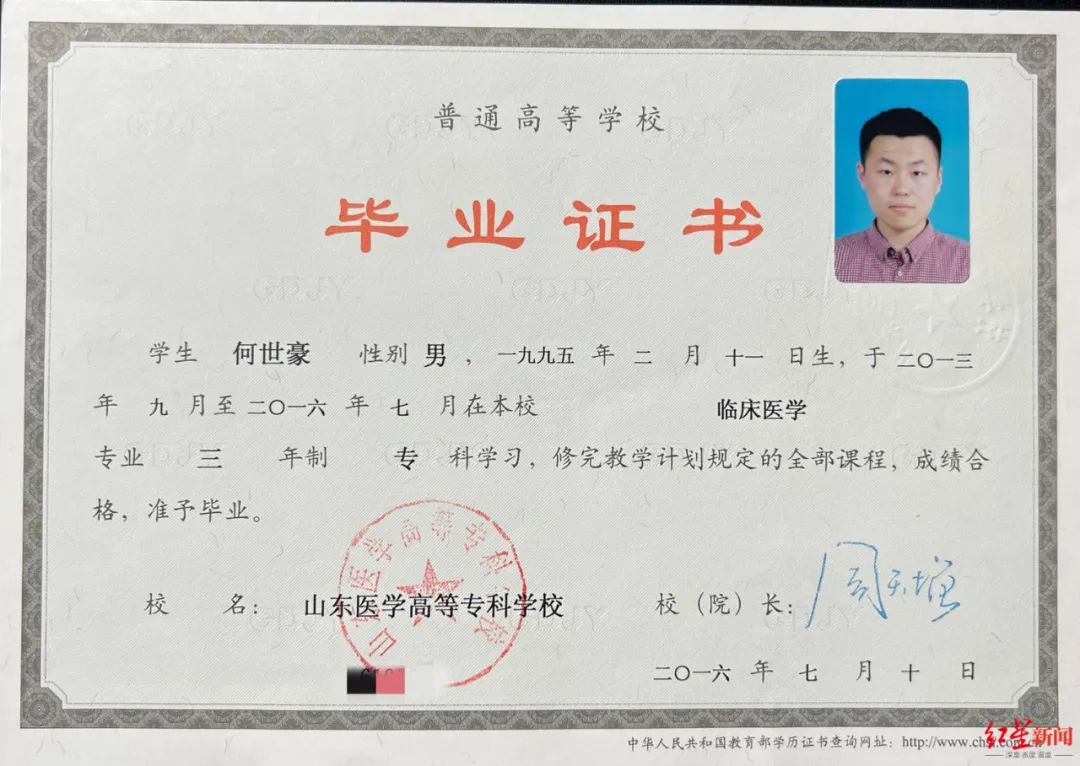 普通高等学校
毕业证书
学生 何世豪 性别 男 ，一九九五 年 二 月 十一 日生，于 二〇一三
年 九 月至 二〇一六 年 七 月在本校 临床医学
专业 三 年制 专 科学习，修完教学计划规定的全部课程，成绩合
格，准予毕业。
山东医学高等专科学校
校 名： 山东医学高等专科学校 校（院）长： 周天增
二〇一六 年 七 月 十 日
中华人民共和国教育部学历证书查询网址：http://www.ch
红星新闻
深度 态度 温度